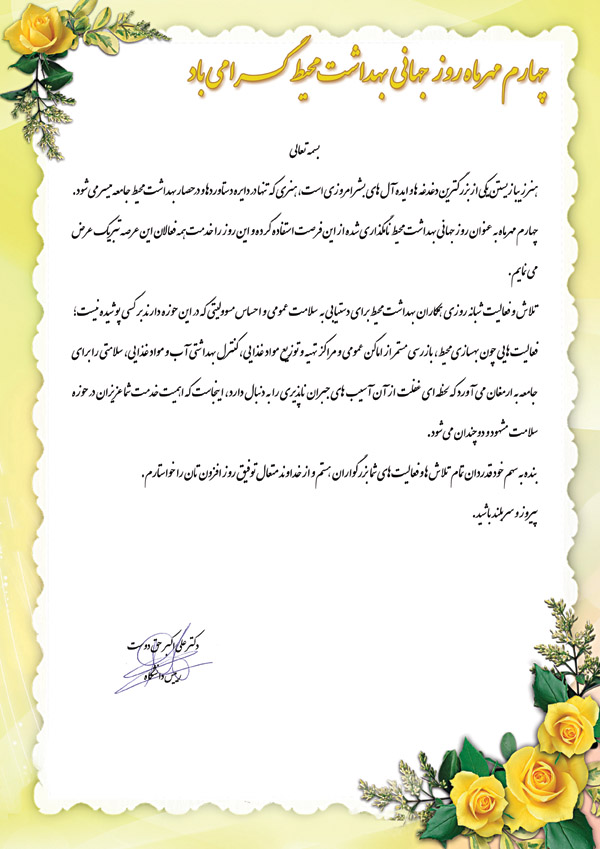 چهارم مهرماه روز جهانی بهداشت محیط گرامی باد
بسمه تعالی
هنر زیبا زیستن یکی از بزرگترین دغدغه ها و ایده آل های بشر امروزی است، هنری که تنها در دایره دستاوردها و در حصار بهداشت محیط جامعه میسر می شود.
چهارم مهرماه به عنوان روز جهانی بهداشت محیط نامگذاری شده از این فرصت استفاده کرده و این روز را خدمت همه فعالان این عرصه تبریک عرض
می نمایم.
تلاش و فعالیت شبانه روزی همکاران بهداشت محیط برای دستیابی به سلامت عمومی و احساس مسوولیتی که در این حوزه دارند بر کسی پوشیده نیست؛
فعالیت هایی چون بهسازی محیط، بازرسی مستمر از اماکن عمومی و مراکز تهیه و توزیع مواد غذایی، کنترل بهداشتی آب و مواد غذایی، سلامتی را برای
جامعه به ارمغان می آورد که لحظه ای غفلت از آن آسیب های جبران ناپذیری را به دنبال دارد، اینجاست که اهمیت خدمت شما عزیزان در حوزه
سلامت مشهود و دوچندان می شود.
بنده به سهم خود قدردان تمام تلاش ها و فعالیت های شما بزرگواران هستم و از خداوند متعال توفیق روز افزون تان را خواستارم.
پیروز و سربلند باشید.
دکتر علی اکبر حق دوست
رییس دانشگاه